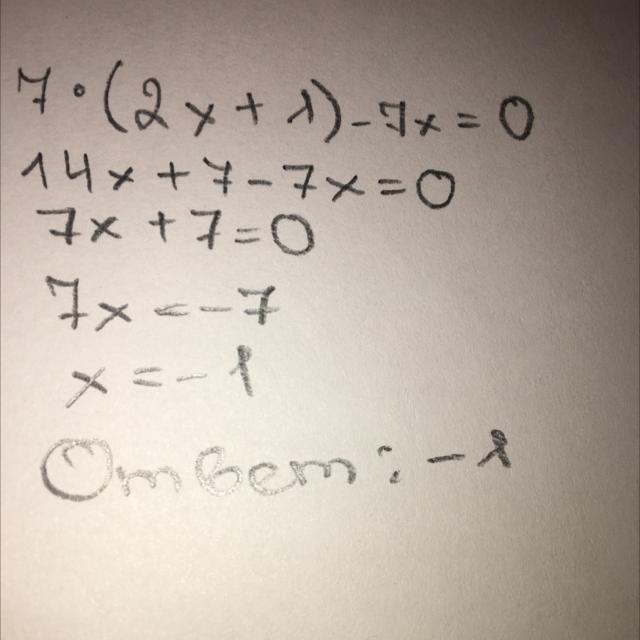 7·(2x+1)-7x=0
14x+7-7x=0
7x+7=0
7x=-7
x=-1
Ответ: -1